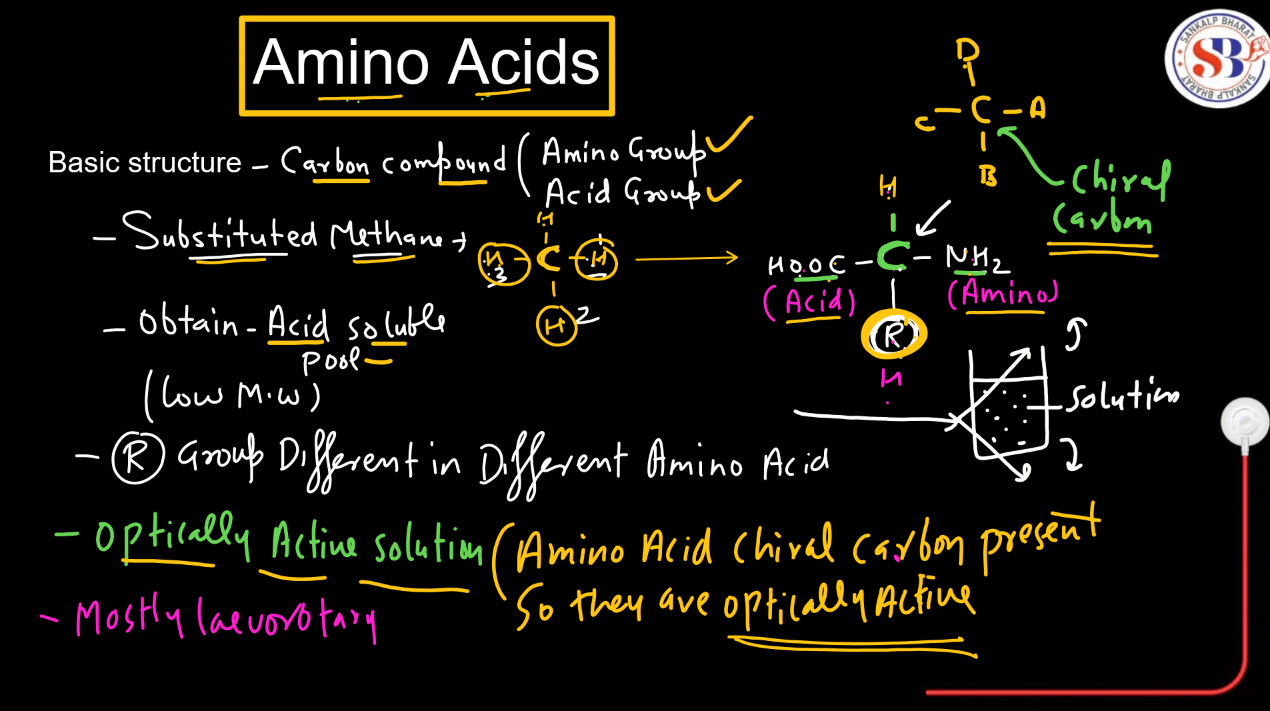 Amino Acids
SANKALP BHARAT
SB
SANKALP BHARAT
D
C – C – A
B
Chiral
Carbon
Basic structure – Carbon compound ( Amino Group ✓
Acid Group ✓
– Substituted Methane →
H
H – C – H
3
1
H 2
H
HOOC – C – NH2
(Acid)
(Amino)
R
H
– Obtain – Acid soluble
pool –
(low M.W)
Solution
– R Group Different in Different Amino Acid
– Optically Active solution ( Amino Acid Chiral Carbon present
So they are optically Active
– Mostly laevorotary